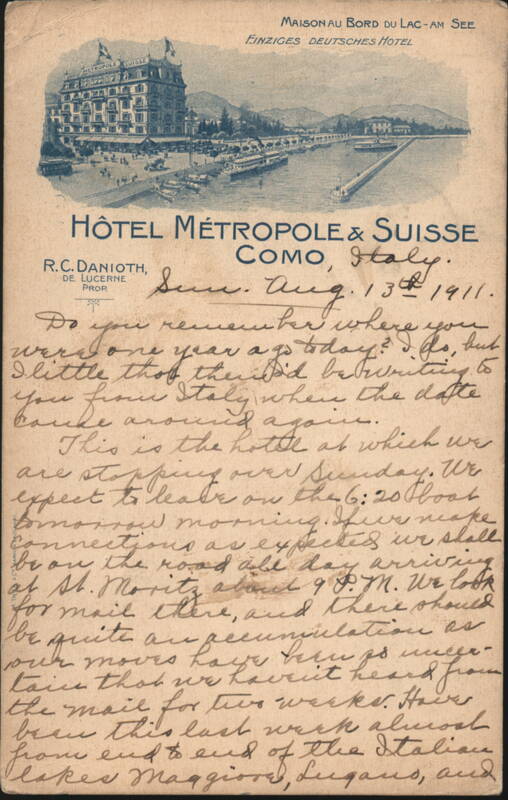 MAISON AU BORD DU LAC - AM SEE
EINZIGES DEUTSCHES HOTEL
METROPOLE & SUISSE
HÔTEL MÉTROPOLE & SUISSE
COMO, Italy.
R.C. DANIOTH,
DE LUCERNE
PROP.
Sun. Aug. 13th 1911.
Do you remember where you
were one year ago today? I do, but
I little tho't then I'd be writing to
you from Italy when the date
came around again.
This is the hotel at which we
are stopping over Sunday. We
expect to leave on the 6:20 boat
tomorrow morning. If we make
connections as expected we shall
be on the road all day arriving
at St. Moritz about 9 P.M. We look
for mail there, and there should
be quite an accumulation as
our moves have been so uncer-
tain that we haven't heard from
the mail for two weeks. Have
been this last week almost
from end to end of the Italian
lakes Maggiore, Lugano, and